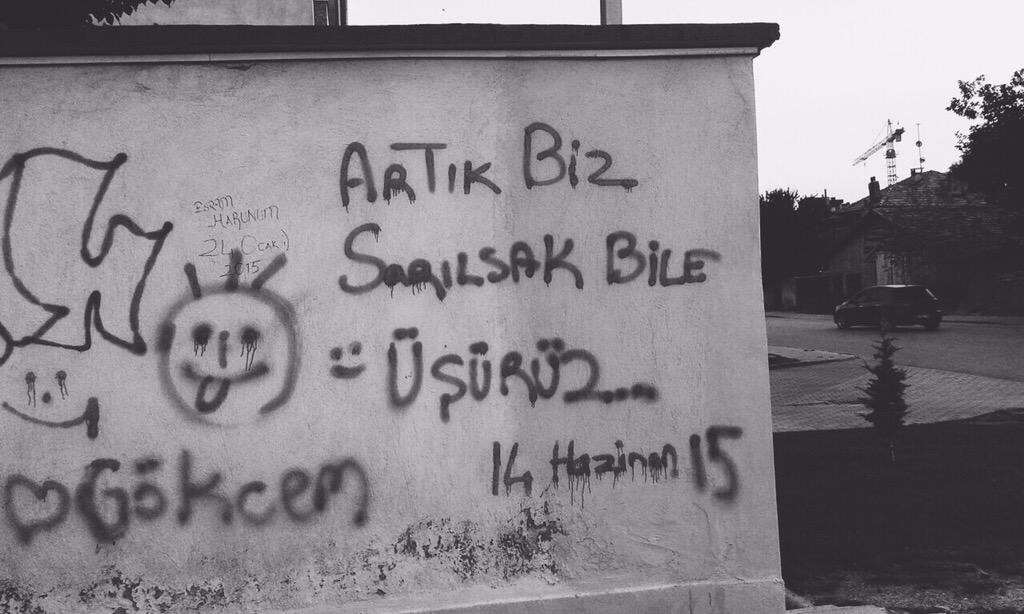 ARTIK BİZ
SARILSAK BİLE
ÜŞÜRÜZ....
14 Haziran 15
ESRAM
HARUNUM
24 OCAK :)
2015
Gökcem